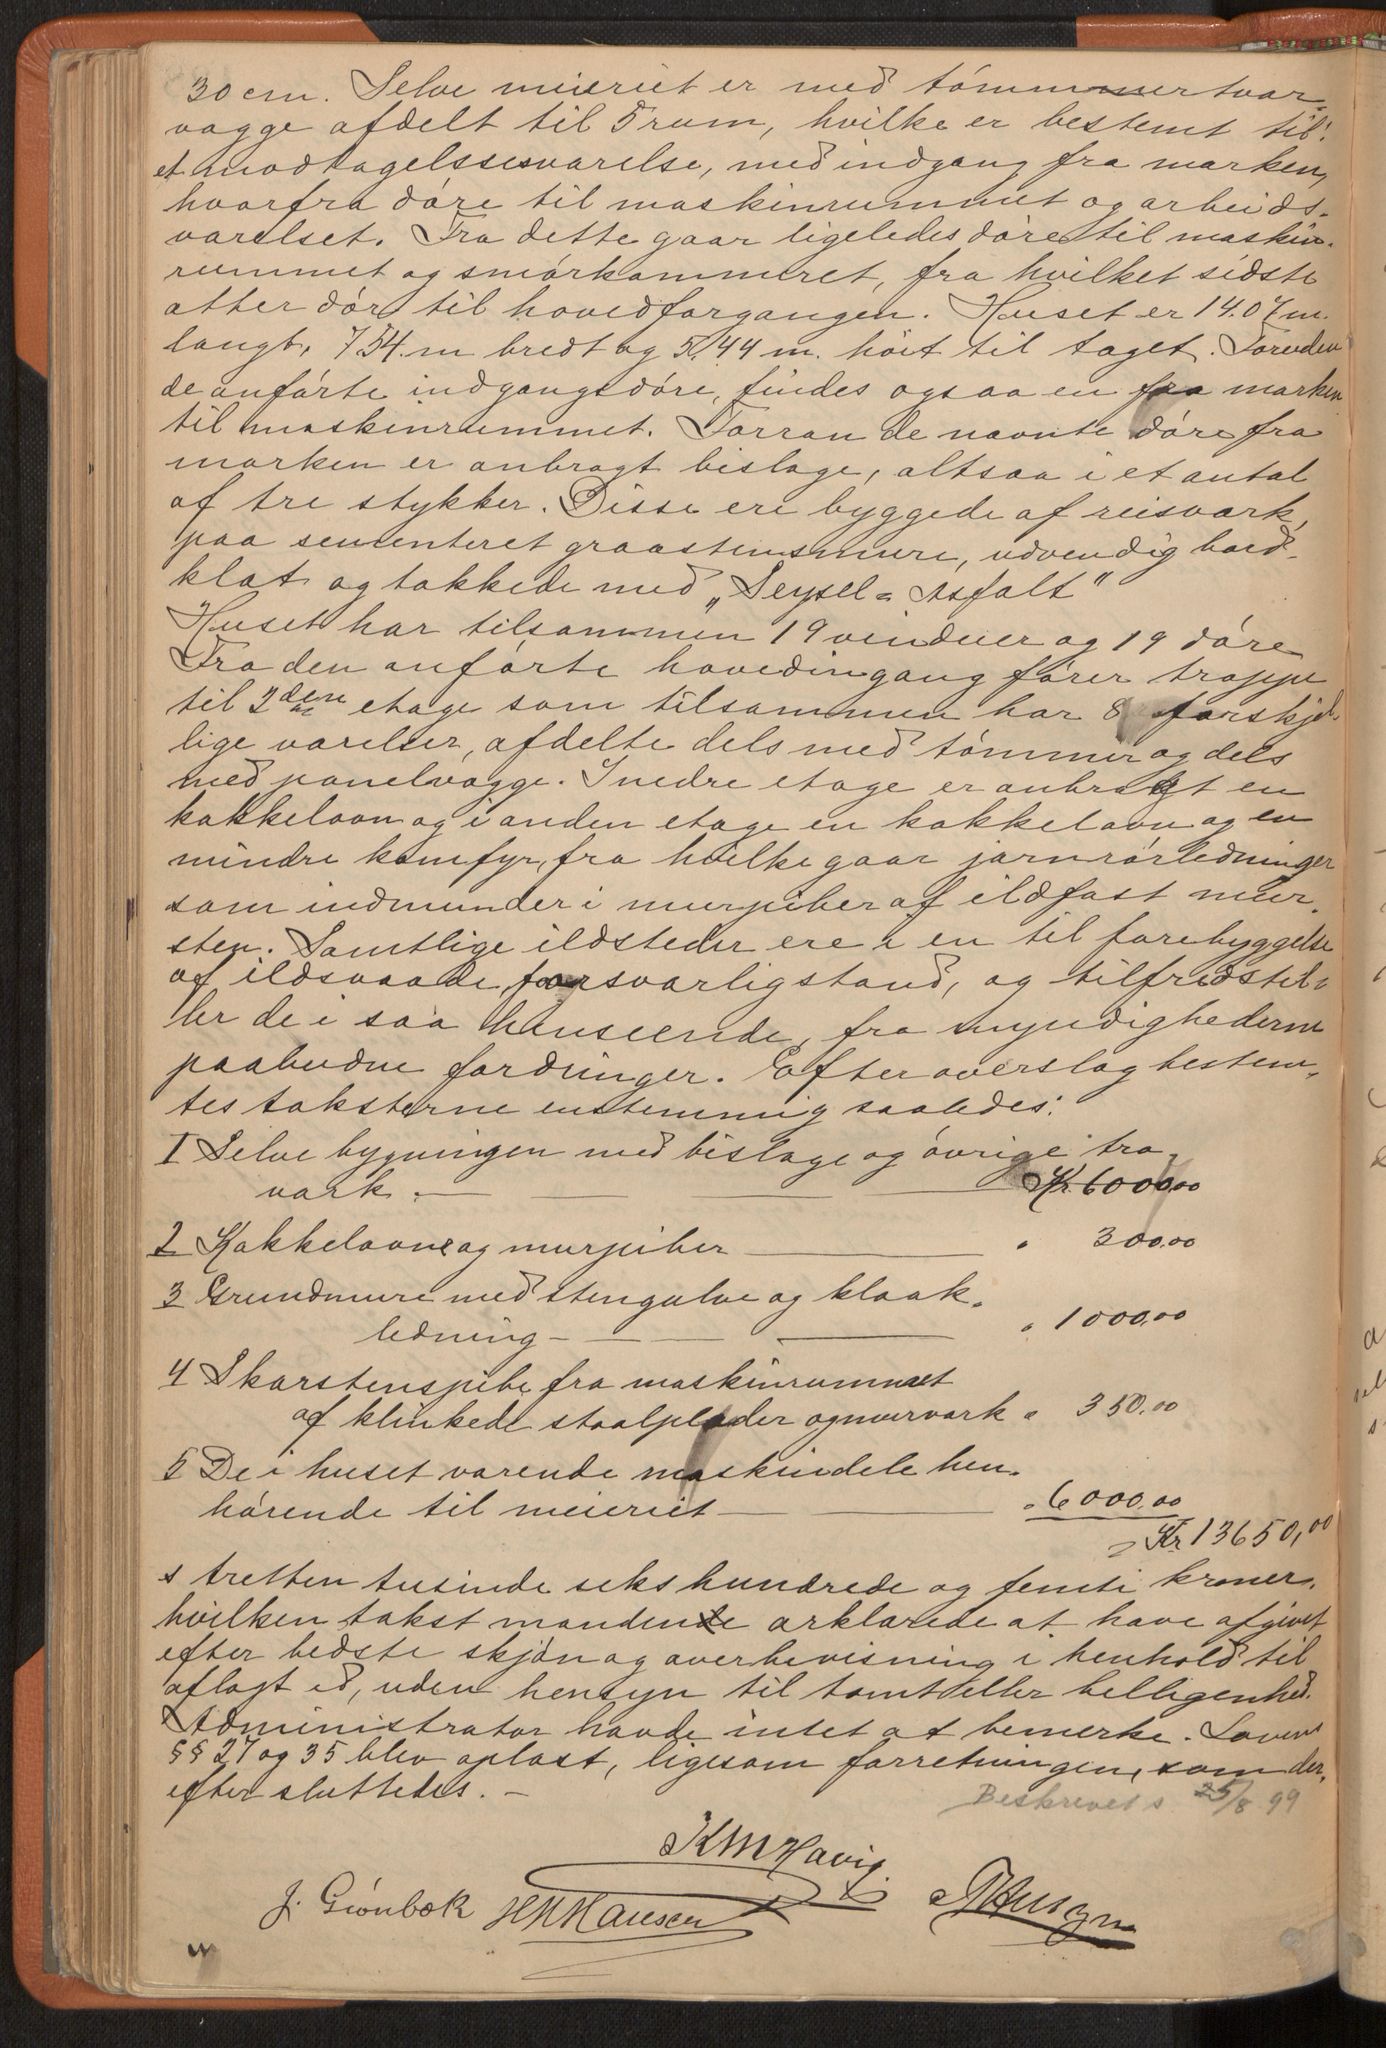 30 cm. Selve meieriet er med tømmertvær-
vægge afdelt til 5 rum, hvilke er bestemt til:
et modtagelsesværelse, med indgang fra marken,
hvorfra døre til maskinrummet og arbeids-
værelset. Fra dette gaar ligeledes døre til maskin-
rummet og smørkammeret, fra hvilket sidste
atter dør til hovedforgangen. Huset er 14.07 m.
langt, 7 54 m bredt og 5.44 m. høit til taget. Foruden
de anførte indgangsdøre, findes ogsaa en fra marken
til maskinrummet. Forran de nævnte døre fra
marken er anbragt bislage, altsaa i et antal
af tre stykker. Disse ere byggede af reisværk,
paa sementeret graastensmure, udvendig bord-
klæt og tækkede med „Seysel = Asfalt"
Huset har tilsammen 19 vinduer og 19 døre
Fra den anførte hovedingang fører trappe
til 2den etage som tilsammen har 8 forskjel-
lige værelser, afdelte dels med tømmer og dels
med panelvægge. I nedre etage er anbragt en
kakkelovn og i anden etage en kakkelovn og en
mindre komfyr, fra hvilke gaar jærnrørledninger
som indmunder i murpiber af ildfast mur-
sten. Samtlige ildsteder ere i en til forebyggelse
af ildsvaade forsvarlig stand, og tilfredsstil-
ler de i saa henseende, fra myndighederne
paabudne fordringer. Efter overslag bestem-
tes taksterne enstemmig saaledes:
I Selve bygningen med bislage og øvrige træ-
værk. — Kr 6000.00
2 Kakkelovne og murpiber — " 300.00
3 Grundmure med stengulve og kloak-
ledning — " 1000.00
4 Skorstenspibe fra maskinrummet
af klinkede staalplader og murværk " 350.00
5 De i huset værende maskindele hen-
hørende til meieriet — " 6000.00
Kr 13650,00
s tretten tusinde seks hundrede og femti kroner.
hvilken takst mændene erklærede at have afgivet
efter bedste skjøn og overbevisning i henhold til
aflagt ed, uden hensyn til tomt eller belligenhed.
Administrator havde intet at bemerke. Lovens
§§ 27 og 35 blev oplæst, ligesom forretningen, som der-
efter sluttedes. —
Beskrevet s 25/8 99
K M Havig
J. Grønbæk H H Hansen